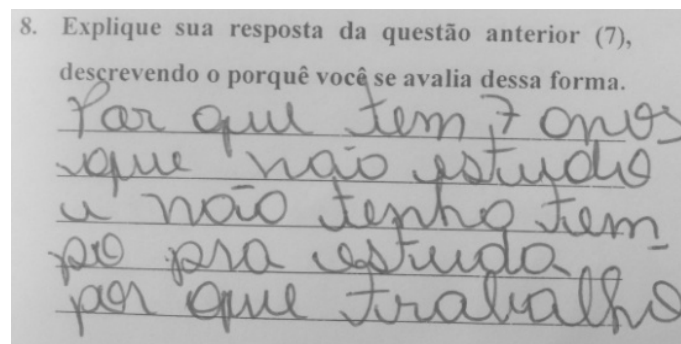 8. Explique sua resposta da questão anterior (7),
descrevendo o porquê você se avalia dessa forma.
Por que tem 7 anos
que não estudo
e não tenho tem
po pra estuda
por que trabalho